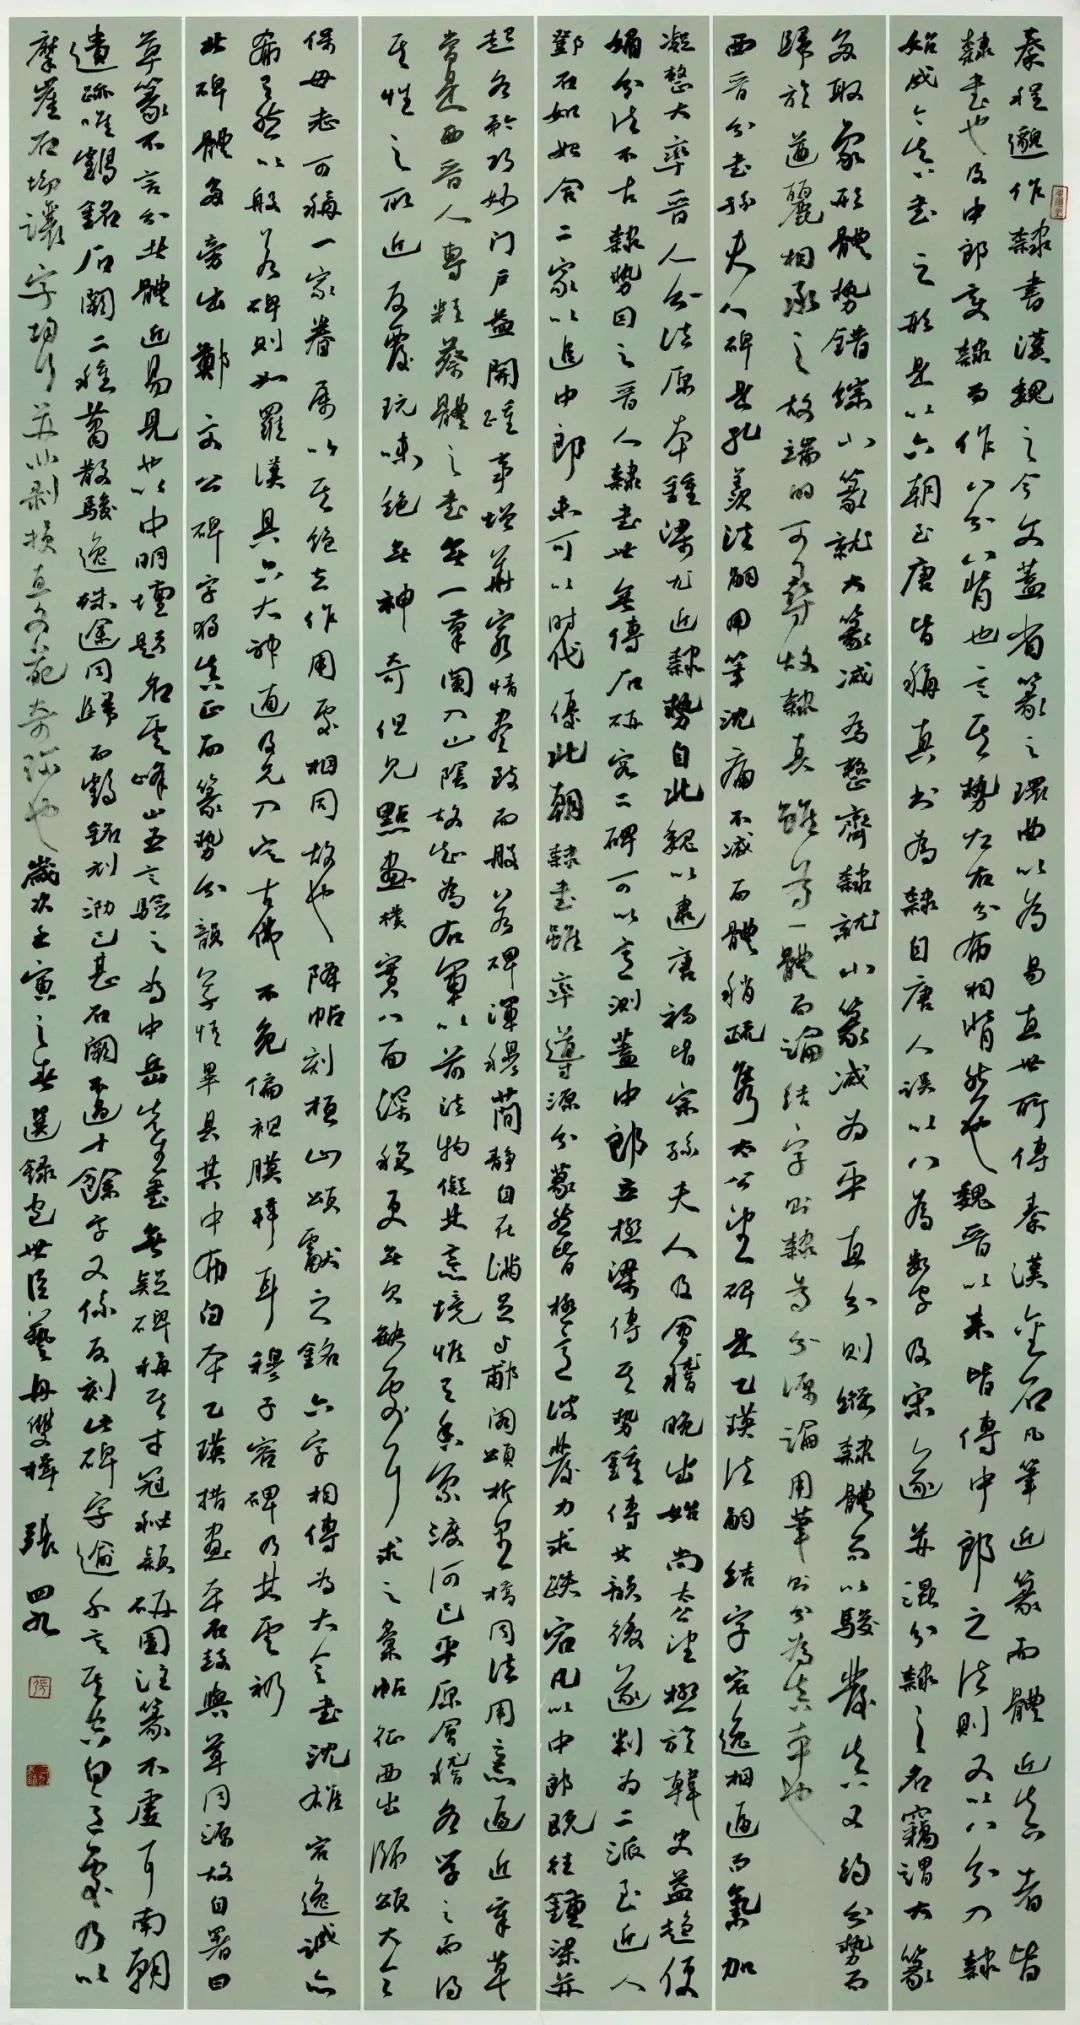 秦程邈作隸書漢魏之今文蓋省篆之環曲以為易直世所傳秦漢金石凡筆近篆而體近真者皆
隸書也及中郎變隸而作八分八背也言其勢左右分布相背然也魏晉以來皆傳中郎之法則又以八分入隸
始成今真書之形是以六朝至唐皆稱真書為隸自唐人誤以八為數字及宋遂并混分隸之名竊謂大篆
多取象形體勢錯綜小篆就大篆減為整齊隸就小篆減為平直分則縱隸體而以駿發真又約分勢而
歸於遒麗相承之故端的可尋故隸真雖為一體而論結字則隸為分源論用筆則分為真本也
西晉分書孫夫人碑是孔羨法嗣用筆沈痛不減而體稍疏雋太公望碑是乙瑛法嗣結字宕逸相逼而氣加
凝整大率晉人分法原本鍾梁尤近隸勢自北魏以逮唐初皆宗孫夫人及會稽晚出始尚太公望極於韓史益趨便
媚分法不古隸勢因之晉人隸書世無傳石研究二碑可以意測蓋中郎立極梁傳其勢鍾傳其韻後遂判為二派至近人
鄧石如始合二家以追中郎未可以時代優北朝隸書雖率導源分篆然皆極意波發力求跌宕凡以中郎既往鍾梁并
起各矜巧妙门户益開踵事增華窮情盡致而般若碑渾穆簡靜自在滿足與郙閣頌析里橋同法用意逼近章草
當是西晉人專精蔡體之書無一筆闌入山陰故知為右軍以前法物儗其意境惟有香象渡河已平原會稽各學之而得
其性之所近反覆玩味絕無神奇但見點畫樸實八面深穩更無欠缺處耳求之彙帖征西出師頌大令
保母志可稱一家眷屬以其絕去作用處相同故也降帖刻桓山頌獻之銘六字相傳為大令書沈雄宕逸誠亦
有之然以般若碑則如羅漢具六大神通及見入定古佛不免偏袒膜拜耳穆子容碑乃其雲礽
北碑體多旁出鄭文公碑字獨真正而篆勢分韻草情畢具其中布白本乙瑛措畫本石鼓與草同源故自署曰
草篆不言分其體近易見也以中明壇題名雲峰山五言驗之為中岳先生書無疑碑稱其才冠祕穎研圖注篆不虛耳南朝
遺跡唯鶴銘石闕二種蕭散駿逸殊途同歸而鶴銘刻泐已甚石闕不過十餘字又係反刻此碑字逾千言其空白之處乃以
摩崖石坳讓字均行并非剝損真文苑奇珍也歲次壬寅之春選錄包世臣藝舟雙楫 張